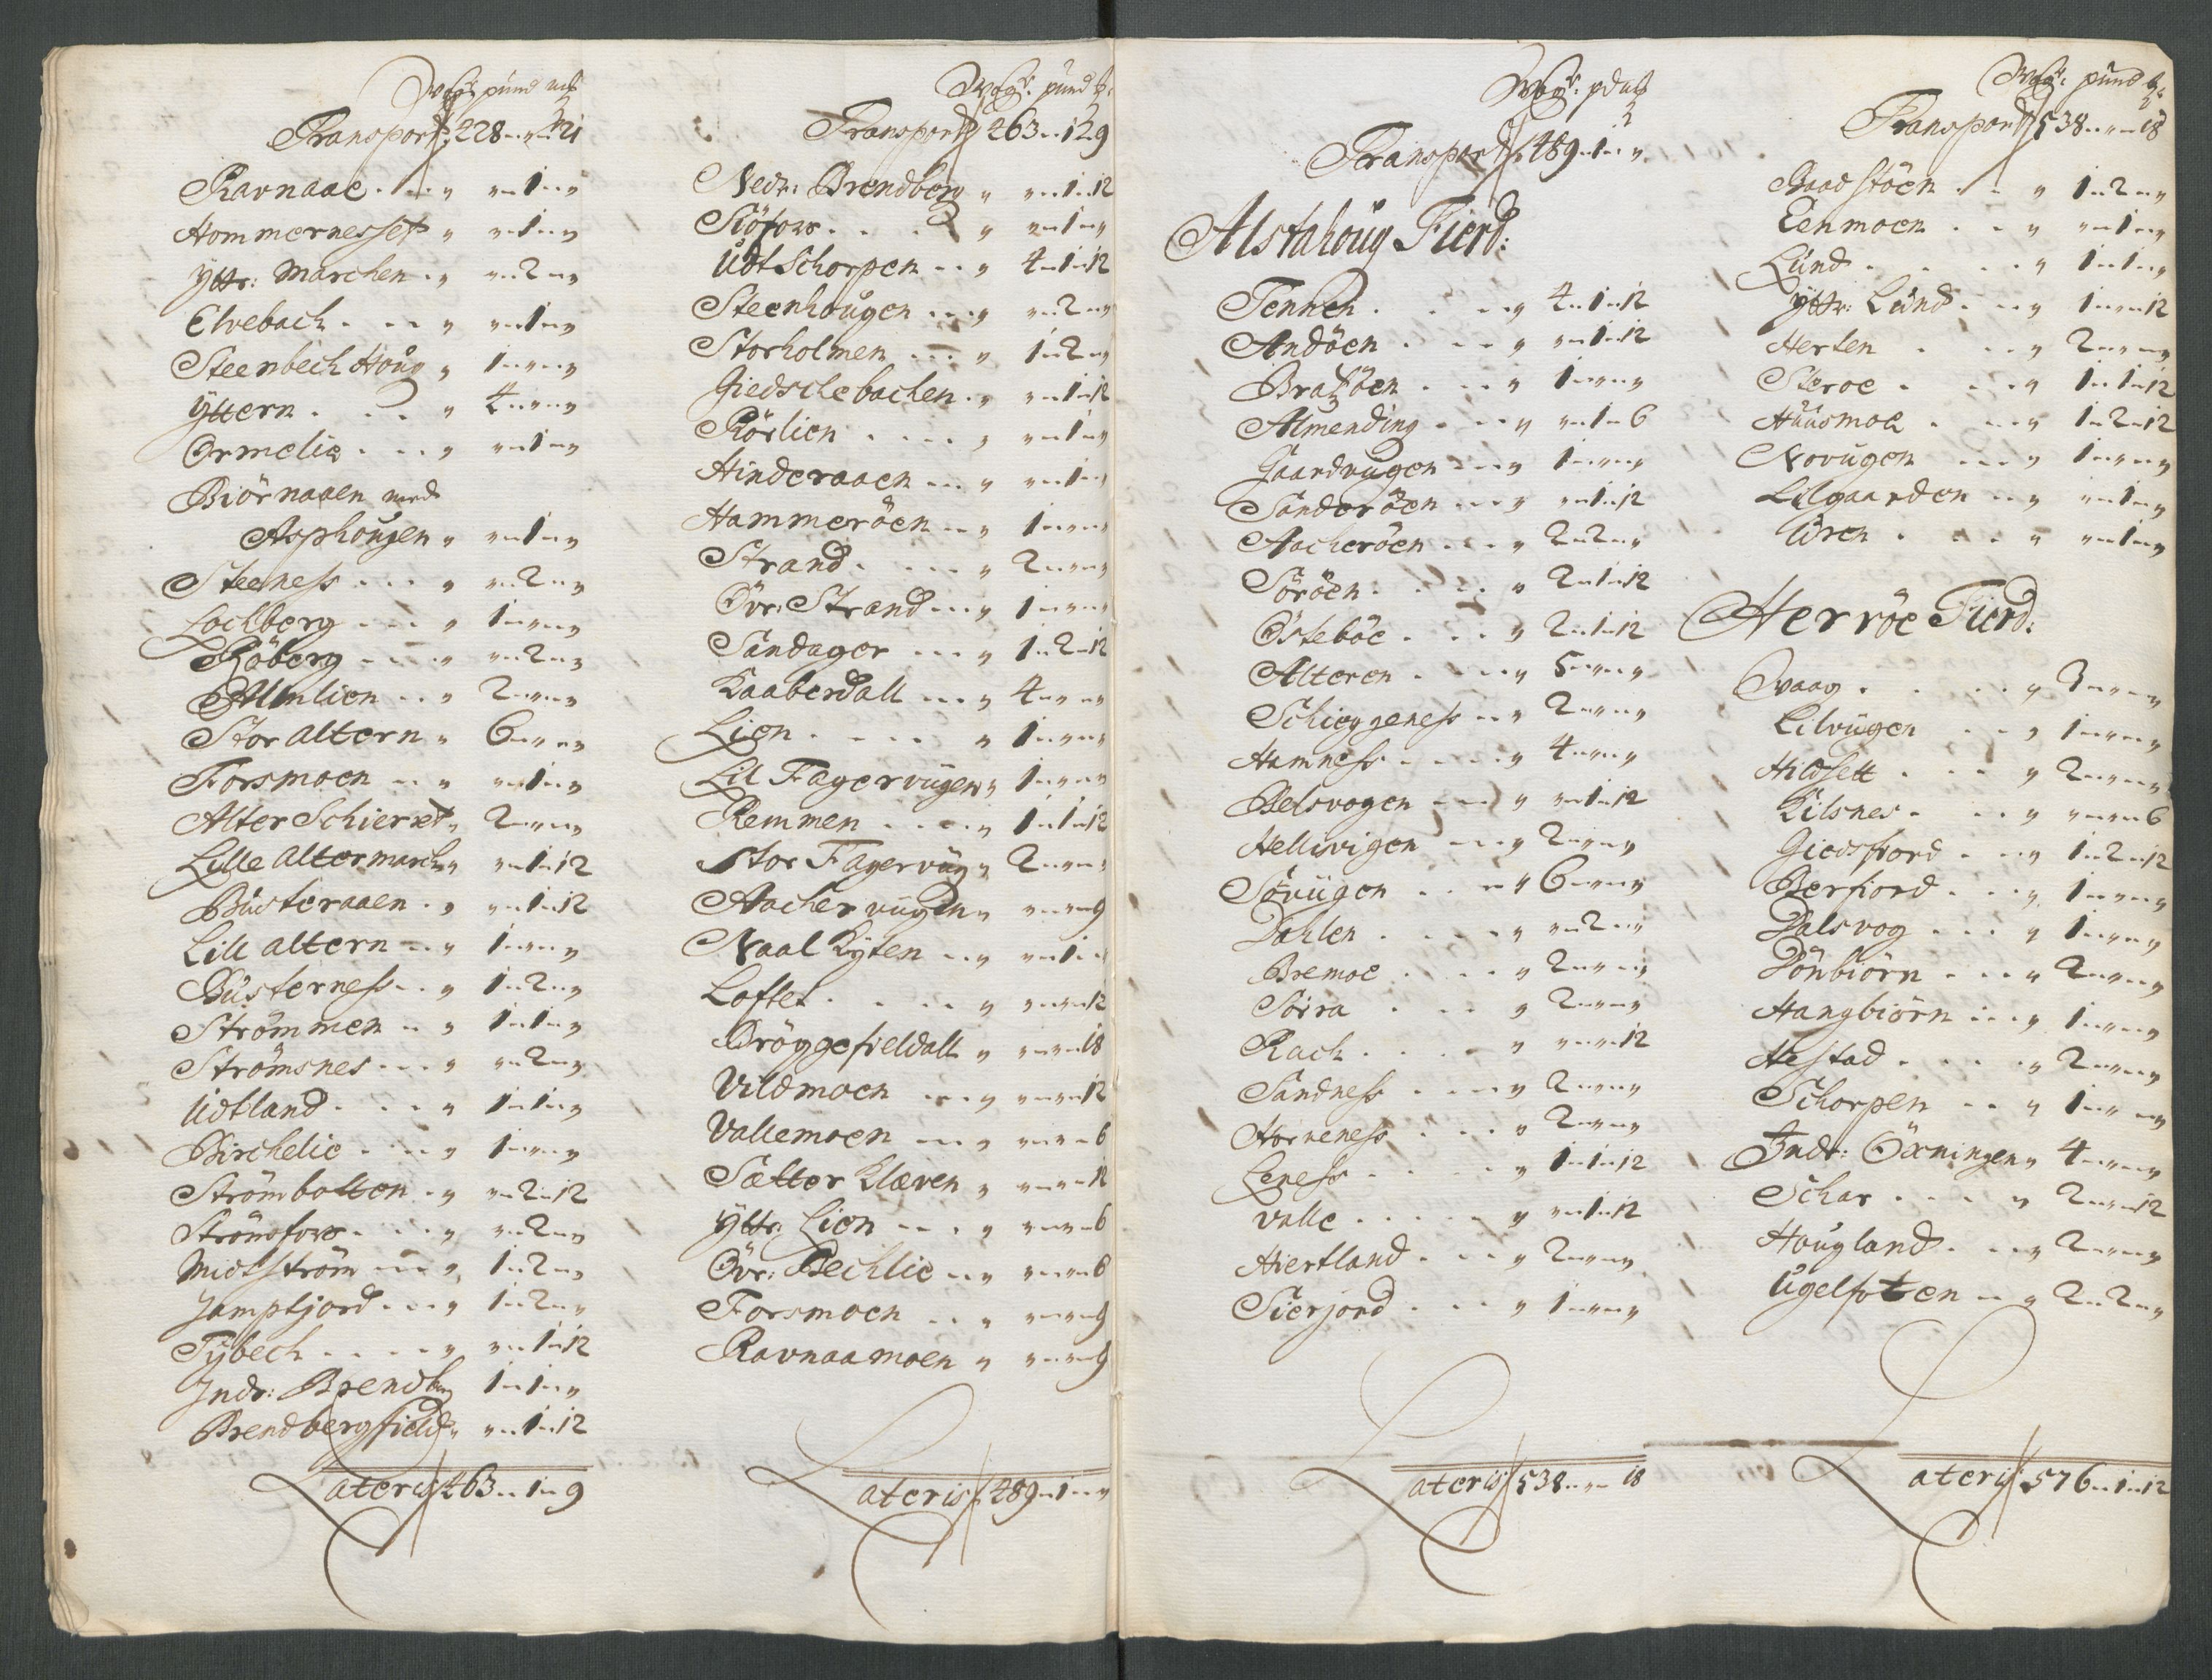 Wogr pund mk
Transport 228 .. „ .. 21
Ravnaae . . . „ „ .. 1 .. „
Hommernesset „ „ .. 1 .. „
Yttr: Marchen . „ „ .. 2 .. „
Elvebach . . . „ „ .. 1 .. „
Steenbech Houg „ 1 .. „ .. „
Yttern . . . „ 4 .. „ .. „
Ormelie . . . „ „ .. 1 .. „
Biörnaaen med
Asphougen „ „ .. 1 .. „
Steeness . . . „ „ .. 2 .. „
Lochberg . . . „ 1 .. „ .. „
Röberg . . . „ „ .. 2 .. „
Almlien . . „ 2 .. „ .. „
Stor altern „ 6 .. „ .. „
Forsmoen . . „ „ .. 1 .. „
Alter Schieret „ 2 .. „ .. „
Lille altermarch „ „ .. 1 .. 12
Busteraaen . „ „ .. 1 .. 12
Lill altern . . „ 1 .. „ .. „
Busterness . . „ 1 .. 2 .. „
Strömmen . . „ 1 .. 1 .. „
Strömsnes . . . „ „ .. 2 .. „
Udtland . . . „ 1 .. 1 .. „
Birchelie . . . „ 1 .. „ .. „
Strömbotten . „ „ .. 2 .. 12
Strömsfors . . . „ „ .. 2 .. „
Midtström . . . „ 1 .. 2 .. „
Jamptjord . . . „ 1 .. 2 .. „
Tybech . . . . „ „ .. 1 .. 12
Indr: Brendberg 1 .. 1 .. „
Brendbergfield „ „ .. 1 .. 12
Lateris 463 .. 1 .. 9
Wogr: pund
Transport 463 .. 1 .. 9
Nedr: Brendberg „ „ .. 1 .. 12
Siöfors . . . „ „ .. 1 .. „
Udt Schorpen . . „ 4 .. 1 .. 12
Steenhougen . . . „ „ .. 2 .. „
Storholmen . . . „ 1 .. 2 .. „
Giedschebachen . „ „ .. 1 .. 12
Rörlien . . . . „ „ .. 1 .. „
Hinderaaen . . . „ „ .. 1 .. „
Hammeröen . . „ 1 .. „ .. „
Strand . . . . „ 2 .. „ .. „
Övr: Strand . . . „ 1 .. „ .. „
Sandager . . . „ 1 .. 2 .. 12
Kaaberdall . . . „ 4 .. „ .. „
Lien . . . . „ 1 .. „ .. „
Lil Fagervugen „ 1 .. „ .. „
Remmen . . . . „ 1 .. 1 .. 12
Stor Fagervug „ 2 .. „ .. „
Aachervugen „ „ .. „ .. 9
Naal Kyten . . „ „ .. 1 .. „
Loftet . . . . „ „ .. „ .. 12
Dröggefieldall „ „ .. „ .. 18
Vildmoen . . . „ „ .. „ .. 12
Vallemoen . . . „ „ .. „ .. 6
Sætter Klæven „ „ .. „ .. 12
Yttr: Lien . . . „ „ .. „ .. 6
Övr: Bechlie . . „ „ .. „ .. 6
Forsmoen . . „ „ .. „ .. 9
Ravnaamoen „ „ .. „ .. 9
Lateris 489 .. 1 .. „
Wogr: pd mk
Transport 489 .. 1 .. „
Alstahoug Fierd:
Tennen . . . . „ 4 .. 1 .. 12
Andöen . . . „ „ .. 1 .. 12
Brazöen . . . „ 1 .. „ .. „
Almending . . . „ „ .. 1 .. 6
Gaardvugen . . . „ 1 .. „ .. „
Sanderöen . . . „ „ .. 1 .. 12
Aacheröen . . . „ 2 .. 2 .. „
Söröen . . . . „ 2 .. 1 .. 12
Östeböe . . . „ 2 .. 1 .. 12
Alteren . . . . „ 5 .. „ .. „
Schieggeness . . „ 2 .. „ .. „
Hamness . . . . „ 4 .. „ .. „
Belsvogen . . . „ „ .. 1 .. 12
Hellisvigen . . . „ 2 .. „ .. „
Søvügen . . . „ 6 .. „ .. „
Dahlen . . . . „ „ .. 2 .. „
Bremoe . . . . „ 2 .. „ .. „
Soira . . . „ 2 .. „ .. „
Rach . . . . „ „ .. „ .. 12
Sandness . . . . „ 2 .. „ .. „
Horveness . . . „ 2 .. „ .. „
Leness . . . . „ 1 .. 1 .. 12
Valle . . . . . „ „ .. 1 .. 12
Hiertland . . . „ 2 .. „ .. „
Sierjord . . . „ 1 .. „ .. „
Lateris 538 .. „ .. 18
Wogr: pund
Transport 538 .. „ .. 18
Baadstöen . . „ 1 .. 2 .. „
Eenmoen . . „ „ .. 1 .. „
Lund . . . . . „ 1 .. 1 .. „
Yttr: Lund . . . „ 1 .. „ .. 12
Herten . . . „ 2 .. „ .. „
Steroe . . . „ 1 .. 1 .. 12
Huusmoe . . . „ 1 .. 2 .. 12
Novugen . . . „ 1 .. „ .. „
Lilgaarden . . „ „ .. 1 .. „
Uren . . . . „ „ .. 1 .. „
Herröe Fierd:
Svaag . . . . „ 3 .. „ .. „
Lilvügen . . . „ 1 .. „ .. „
Hildsett . . . „ 2 .. „ .. „
Kilsnes . . . „ „ .. „ .. 6
Giedsfiord . . . „ 1 .. 2 .. 12
Berfiord . . . „ 1 .. „ .. „
Dalsvog . . . „ 1 .. „ .. „
Dönbiörn . . . „ 2 .. „ .. „
Hangbiörn . . . „ 1 .. „ .. „
Hestad . . . . „ 2 .. „ .. „
Schorpen . . „ 1 .. „ .. „
Indr: Öxningen „ 4 .. „ .. „
Schar . . . . „ 2 .. „ .. 12
Hougland . . . „ 2 .. „ .. „
Ugelfoten . . „ 2 .. 2 .. „
Lateris 576 .. 1 .. 12